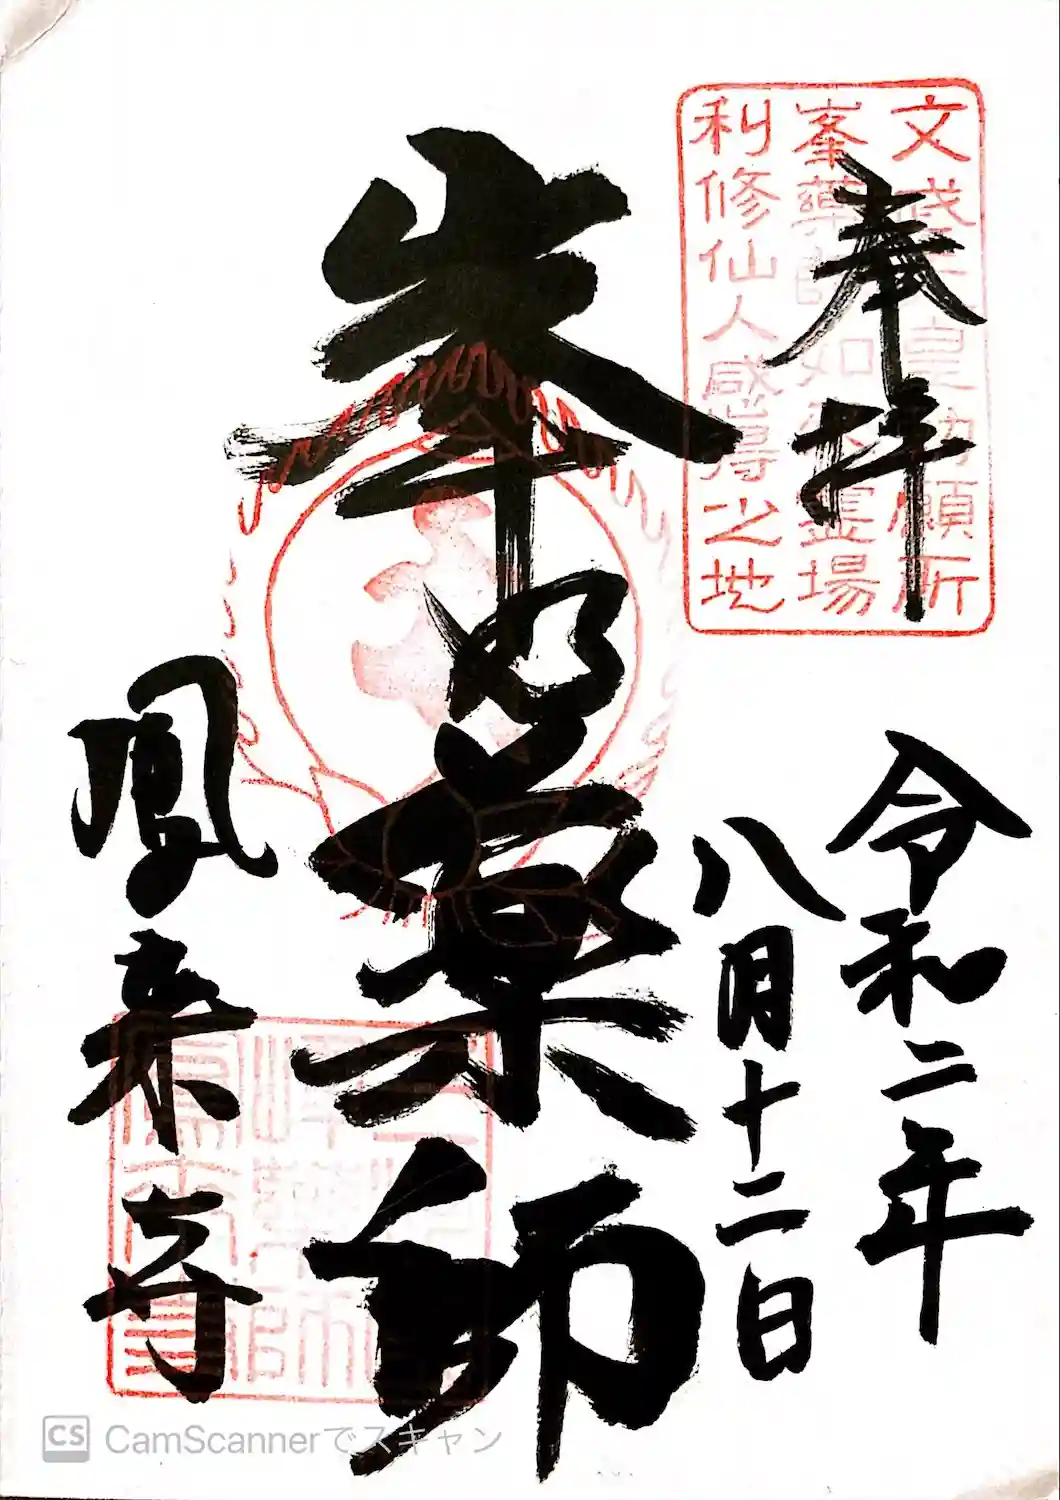 奉拝
文武天皇勅願所
峯薬師如来霊場
利修仙人感得之地
令和二年
八月十二日
峯の薬師
鳳来寺
CamScannerでスキャン